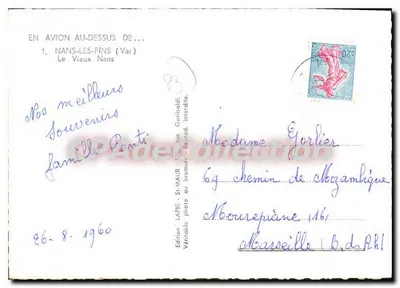 EN AVION AU-DESSUS DE...
1. NANS-LES-PINS (Var)
Le Vieux Nans
Nos meilleurs
souvenirs
famille Conti
26-8-1960
Edition LAPIE - St-MAUR
Véritable photo au bromure - Reprod. interdite.
Madame Gorlier
69 chemin de Mozambique
Mourepiane (16)
Marseille (B.d.Rh)